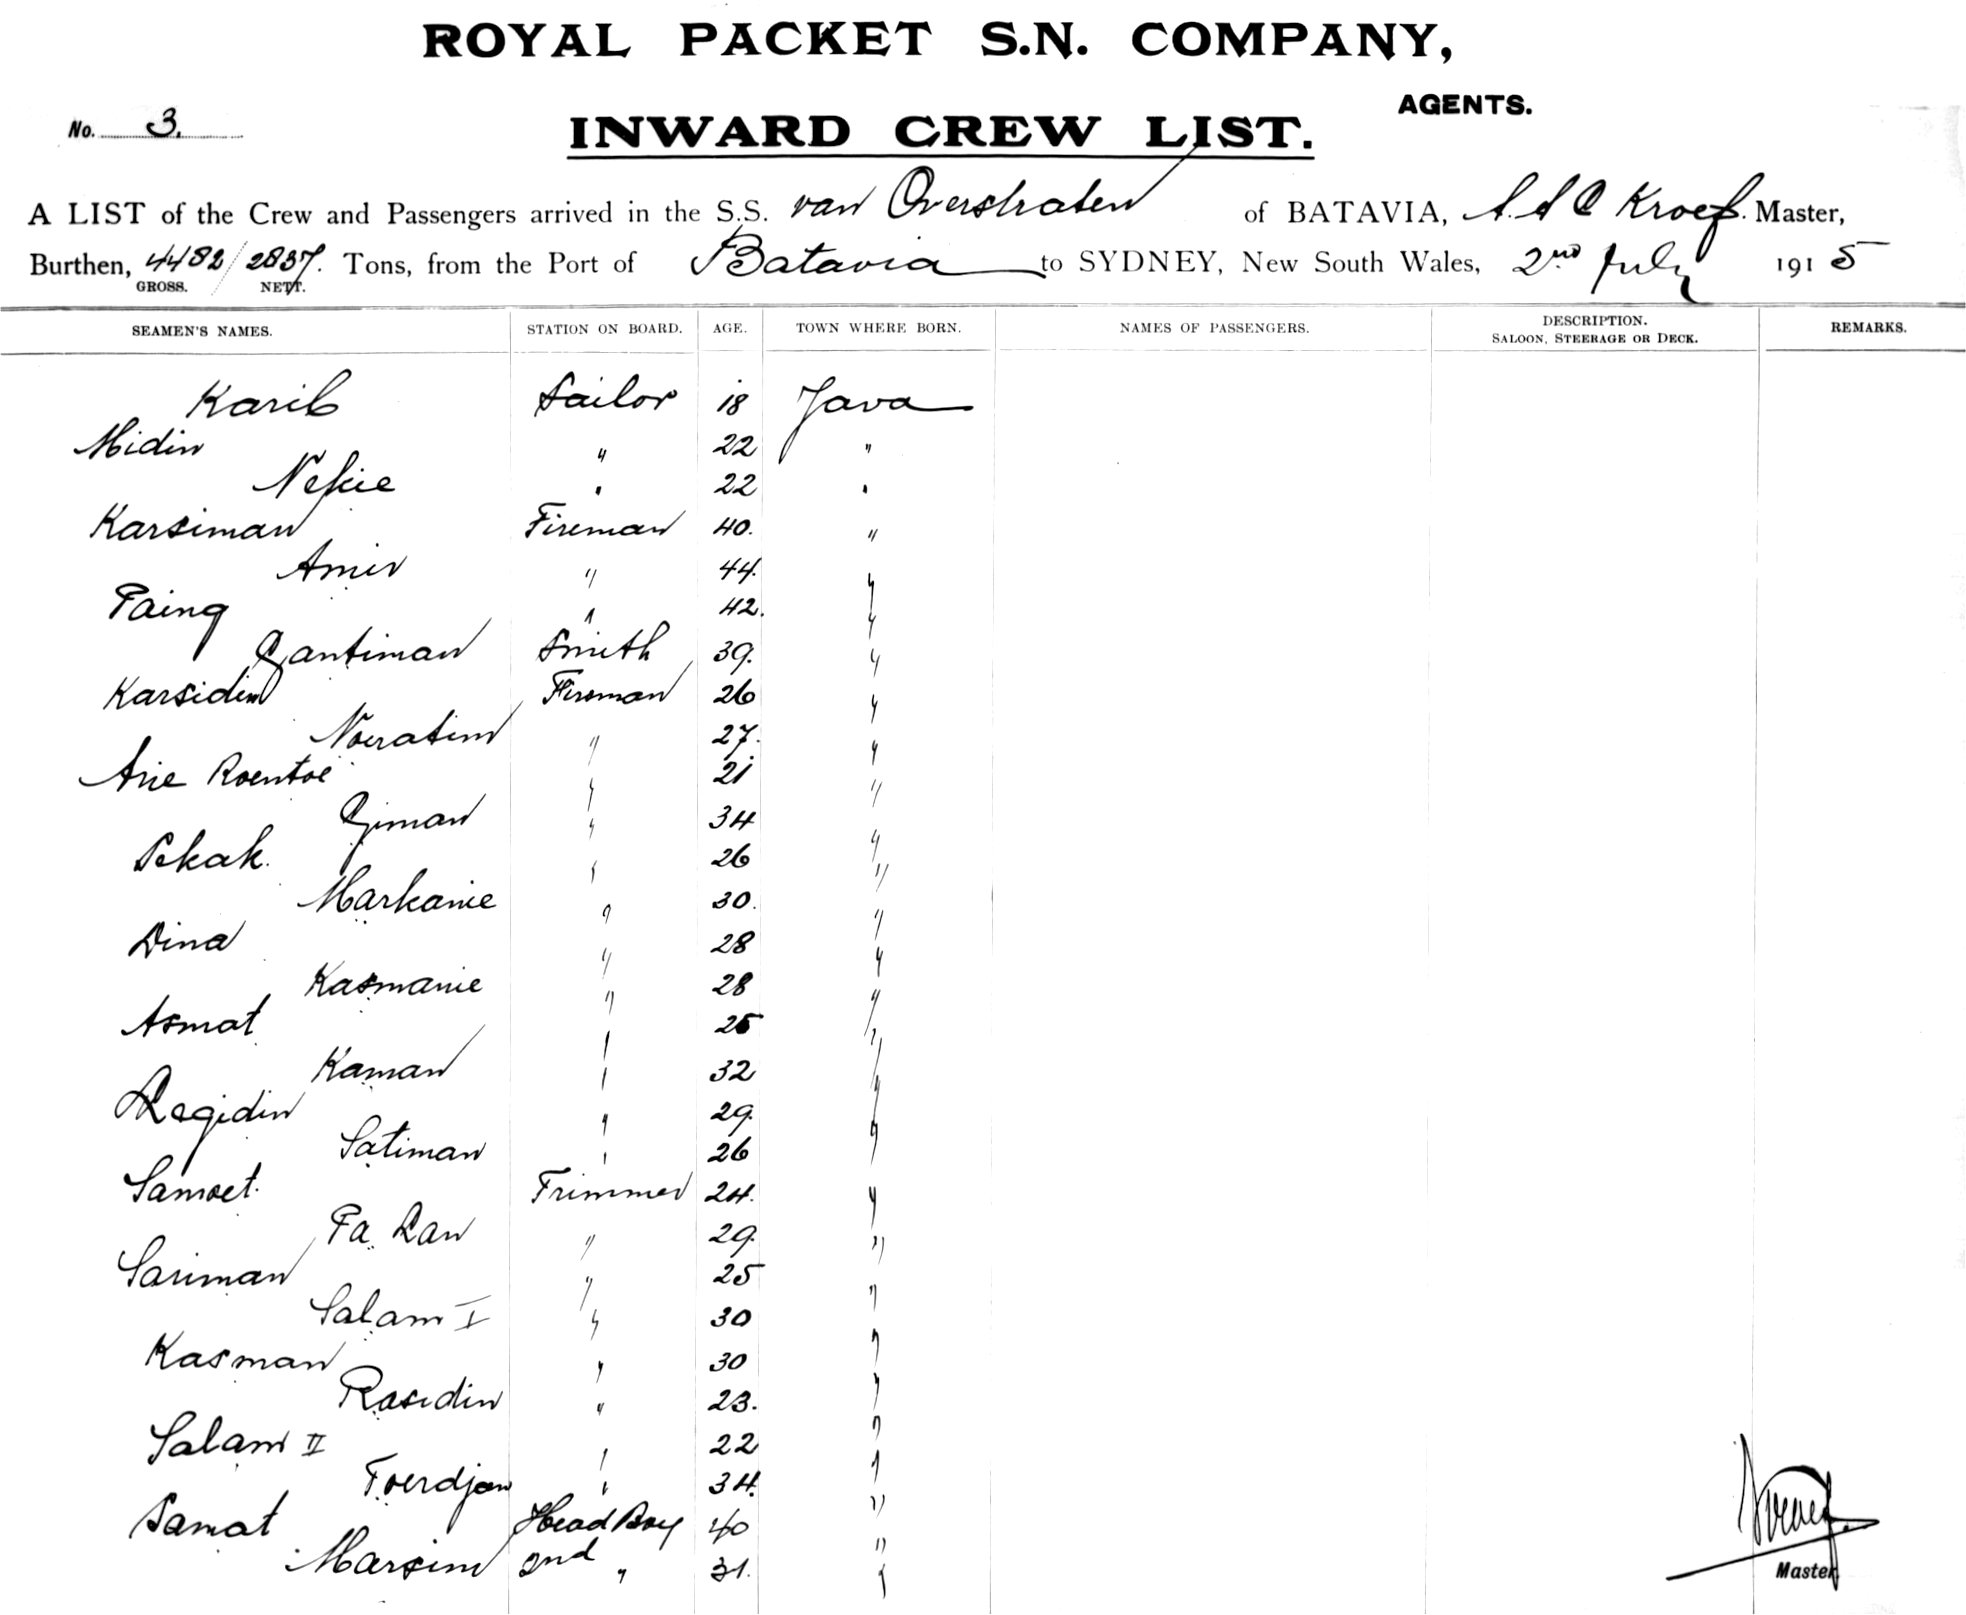 ROYAL PACKET S.N. COMPANY,
AGENTS.
No. 3.
INWARD CREW LIST.
A LIST of the Crew and Passengers arrived in the S.S. van Overstraten of BATAVIA, A. A C Kroef. Master,
Burthen, 4482/2837. Tons, from the Port of Batavia to SYDNEY, New South Wales, 2nd July 1915
GROSS. NETT.
SEAMEN'S NAMES. STATION ON BOARD. AGE. TOWN WHERE BORN. NAMES OF PASSENGERS. DESCRIPTION. SALOON, STEERAGE OR DECK. REMARKS.
Karib Sailor 18 Java
Midin " 22 "
Nekie " 22 "
Karsiman Fireman 40. "
Amir " 44. "
Paing " 42. "
Gantiman Smith 39. "
Karsidin Fireman 26 "
Noeratim " 27. "
Arie Roentoe " 21 "
Giman " 34 "
Sekak. " 26 "
Markanie " 30. "
Dina " 28 "
Kasmanie " 28 "
Asmat " 25 "
Kaman " 32 "
Ragidin " 29. "
Satiman " 26 "
Samoet. Trimmer 24. "
Pa Ran " 29. "
Sariman " 25 "
Salam I " 30 "
Kasman " 30 "
Rasidin " 23. "
Salam II " 22 "
Toerdjan " 34. "
Samat Head Boy 40 "
Marsim 2nd " 31. "
Master